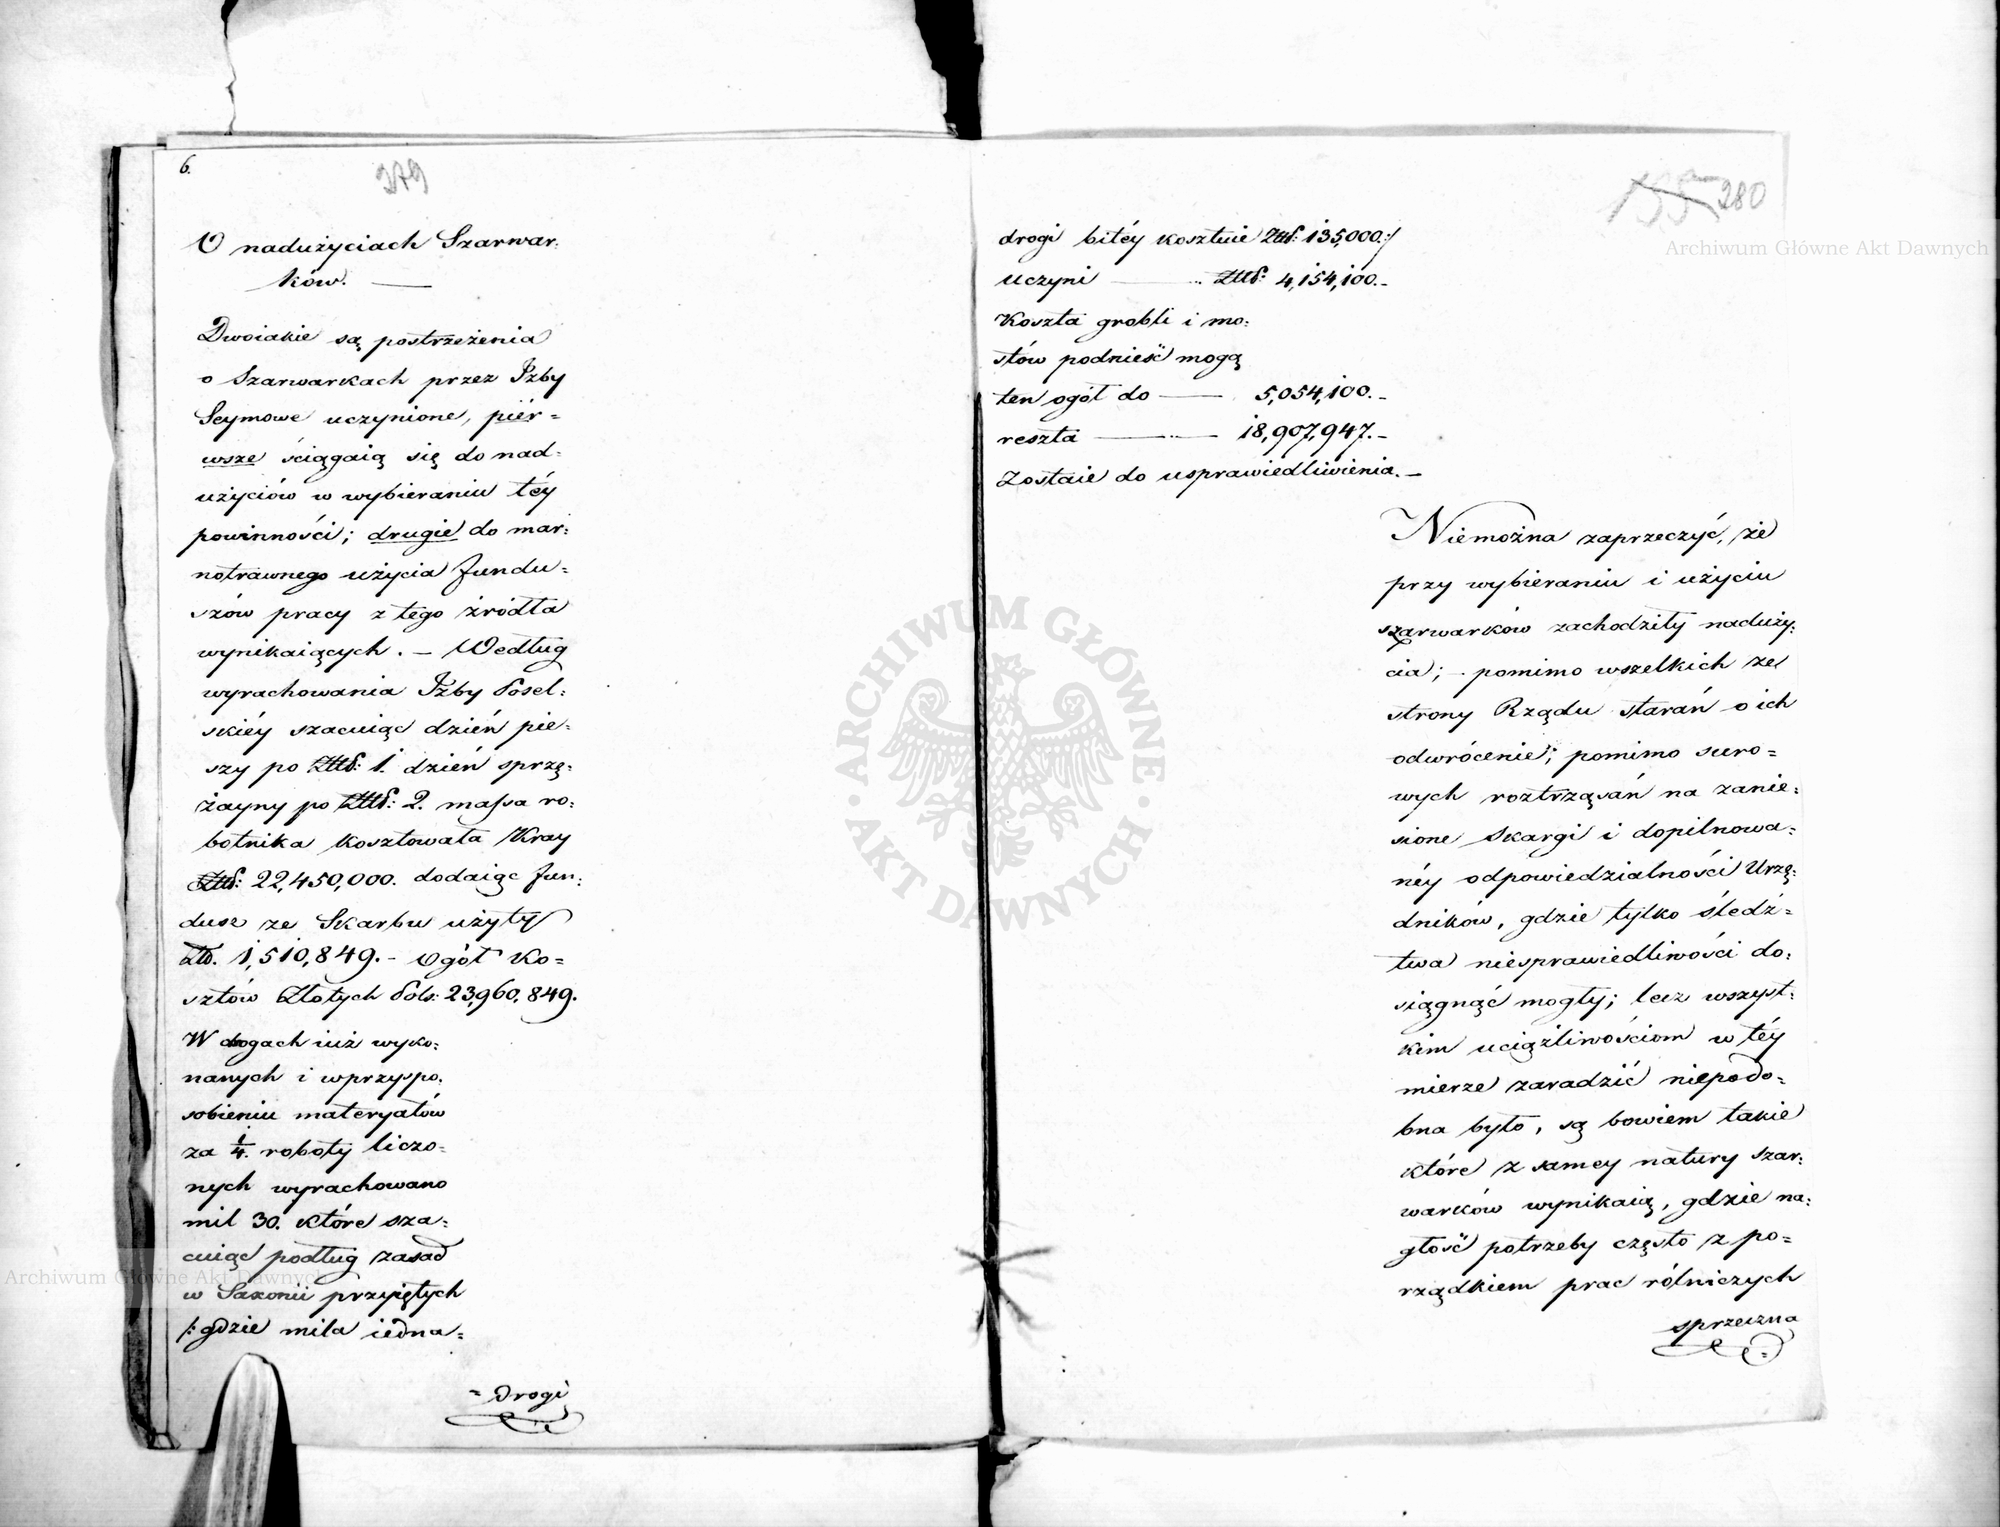 6.
279
O nadużyciach Szarwar:
ków. —
Dwoiakie są postrzeżenia
o Szarwarkach przez Izby
Seymowe uczynione, piér=
wsze ściągaią się do nad:
użyciów w wybieraniu téy
powinności; drugie do mar:
notrawnego użycia fundu=
szów pracy z tego źródła
wynikaiących. – Według
wyrachowania Izby Posel:
skiéy szacuiąc dzień pie=
szy po Złł: 1. dzień sprzę:
żayny po Złł: 2. massa ro:
botnika kosztowała Kray
Złł: 22,450,000. dodaiąc fun:
dusz ze Skarbu użyty
Zło. 1,510,849. – Ogół ko=
sztów Złotych Pols: 23,960,849.
W drogach iuż wyko:
nanych i w przyspo:
sobieniu materyałów
za 1/4. roboty liczo=
nych wyrachowano
mil 30. które sza:
cuiąc podług zasad
w Saxonii przyiętych
/: gdzie mila iedna:
= drogi
135 280
drogi bitéy kosztuie Złł: 135,000 :/
uczyni — .. Złł: 4,154,100. –
Koszta grobli i mo:
stów podnieść mogą
ten ogół do — 5,054,100. –
reszta — 18,907,947. –
Zostaie do usprawiedliwienia. –
Niemożna zaprzeczyć, że
przy wybieraniu i użyciu
szarwarków zachodziły naduży:
cia; – pomimo wszelkich ze
strony Rządu starań o ich
odwrócenie; pomimo suro=
wych roztrząsań na zanie=
sione Skargi i dopilnowa:
néy odpowiedzialności Urzę:
dników, gdzie tylko śledz=
twa niesprawiedliwości do:
siągnąć mogły; lecz wszyst:
kim uciążliwościom w téy
mierze zaradzić niepodo=
bna było, są bowiem takie
które z samey natury szar:
warków wynikaią, gdzie na:
głość potrzeby często z po=
rządkiem prac rólniczych
sprzeczna
Archiwum Główne Akt Dawnych
Archiwum Główne Akt Dawnych
ARCHIWUM GŁÓWNE
AKT DAWNYCH